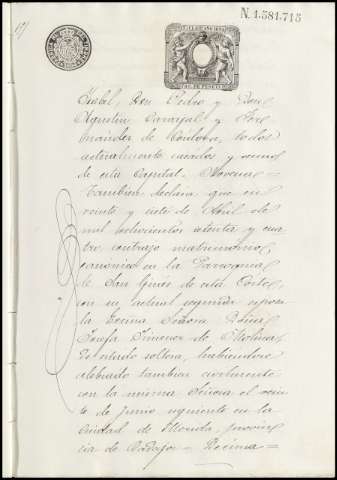 N. 1.581.715
Isabel, Don Pedro y Don
Agustin Carvajal y Fer-
nandez de Cordova, todos
actualmente casados y vecinos
de esta Capital. Novena =
Tambien declara que en
veinte y siete de Abril de
mil ochocientos setenta y cua
tro contrajo matrimonio
canonico en la Parroquia
de San Gines de esta Corte,
con su actual segunda esposa
la Excma Señora Doña
Josefa Jimenez de Molina
de estado soltera, habiendose
celebrado tambien civilmente
con la misma Señora el vein
te de Junio siguiente en la
Ciudad de Merida, provin
cia de Badajoz = Decima =